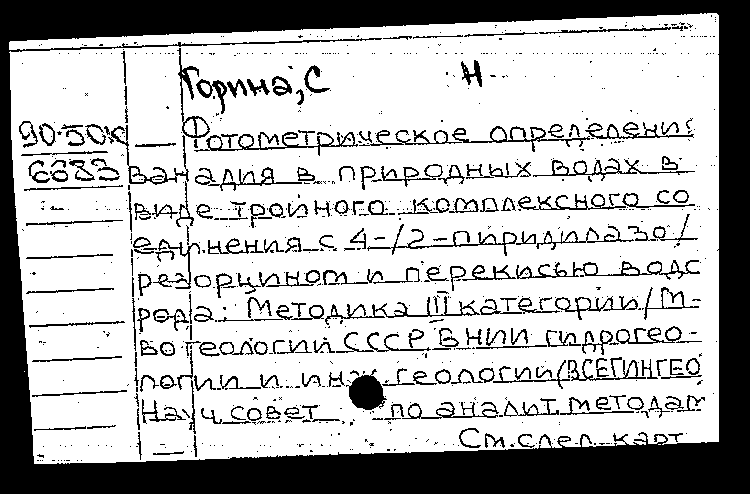 Горина, С Н.
90-50к — Фотометрическое определени
6683 ванадия в природных водах в
виде тройного комплексного со
единения с 4-/2-пиридилазо/
резорцином и перекисью водо
рода: Методика III категории/М-
во геологии СССР, ВНИИ гидрогео-
логии и инж. геологии (ВСЕГИНГЕО
Науч. совет по аналит. методам
См. след. карт.